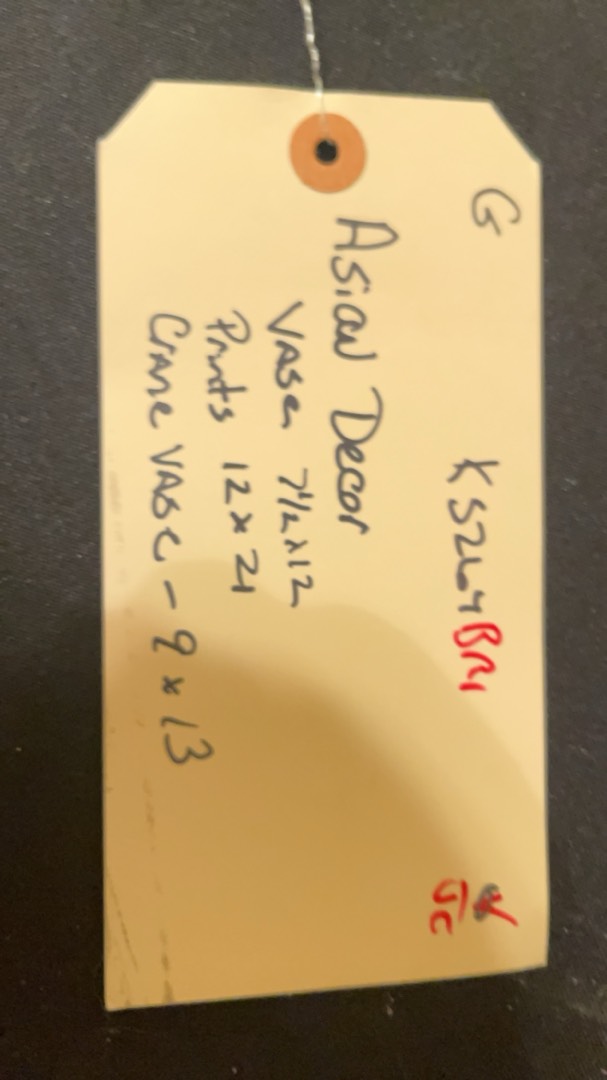 G KS264BR1
Asian Decor
Vase 7 1/2 x 12
Prints 12 x 21
Crane Vase - 9 x 13